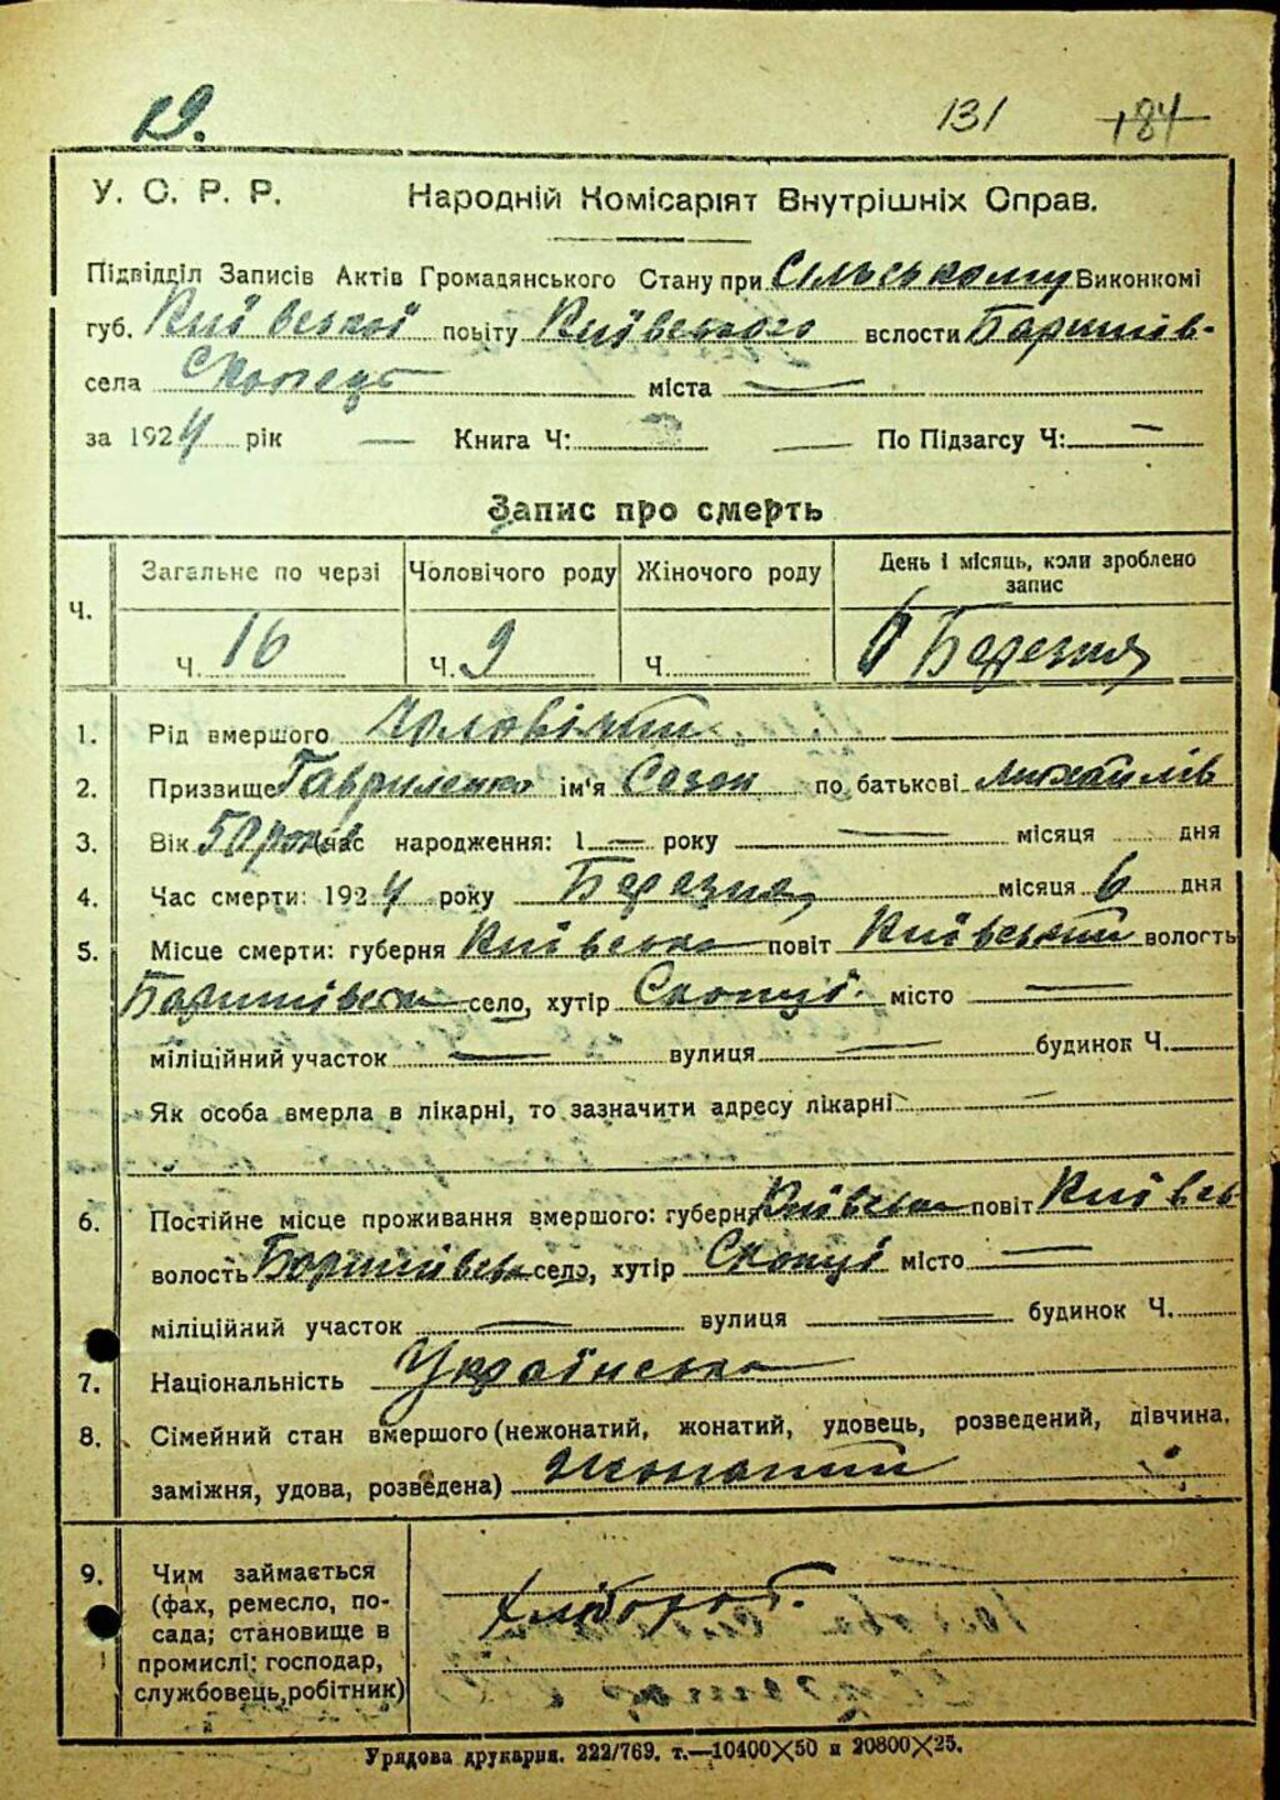 19.
131 184
У. С. Р. Р. Народній Комісаріят Внутрішніх Справ.
Підвідділ Записів Актів Громадянського Стану при Сільському Виконкомі
губ. Київської повіту Київського вслости Баришів-
села міста —
за 1924 рік — Книга Ч: — По Підзагсу Ч: —
Запис про смерть
Ч. Загальне по черзі Чоловічого роду Жіночого роду День і місяць, коли зроблено запис
Ч. 16 Ч. 9 Ч. 6 Березня
1. Рід вмершого
2. Призвище Гавриленко ім'я Созон по батькові Михайлів
3. Вік 50 років Час народження: 1 — року — місяця дня
4. Час смерти: 1924 року Березня місяця 6 дня
5. Місце смерти: губерня Київська повіт Київський волость
Баришівська село, хутір Скопці. місто —
міліційний участок — вулиця — будинок Ч.
Як особа вмерла в лікарні, то зазначити адресу лікарні —
6. Постійне місце проживання вмершого: губерня Київська повіт Київсь
волость Баришівсь село, хутір Скопці місто —
міліційний участок — вулиця — будинок Ч.
7. Національність Українська
8. Сімейний стан вмершого (нежонатий, жонатий, удовець, розведений, дівчина,
заміжня, удова, розведена) Жонатий
9. Чим займається
(фах, ремесло, по-
сада; становище в
промислі: господар,
службовець, робітник)
Хлібороб.
Урядова друкарня. 222/769. т.—10400×50 и 20800×25.